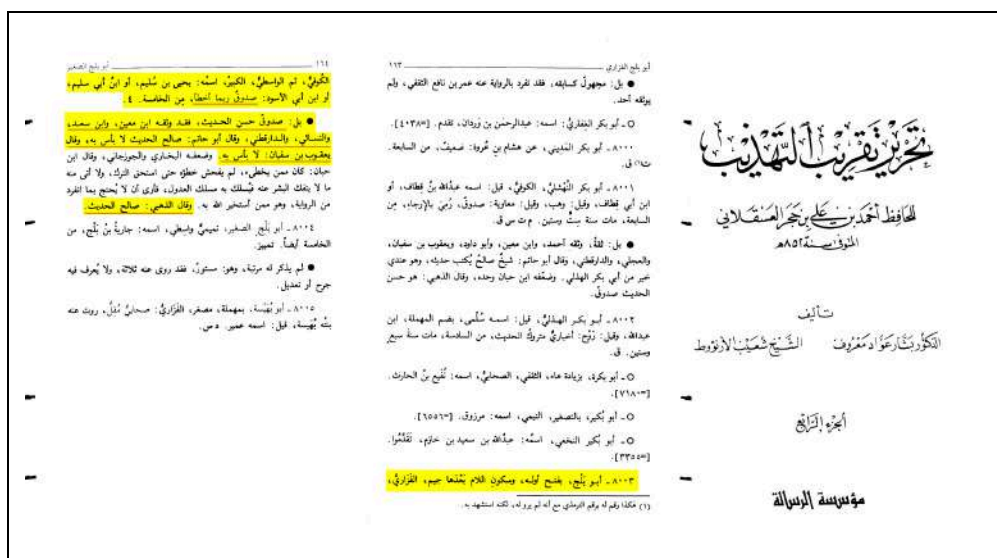 تحرير تقريب التهذيب
للحافظ أحمد بن علي بن حجر العسقلاني
المتوفى سنة ٨٥٢هـ
تأليف
الدكتور بشار عواد معروف الشيخ شعيب الأرنؤوط
الجزء الرابع
مؤسسة الرسالة
أبو بلج الفزاري ١٦٣
● بل: مجهول كسابقه، فقد تفرد بالرواية عنه عمر بن نافع الثقفي، ولم
يوثقه أحد.
○ ـ أبو بكر الغفاري: اسمه: عبدالرحمن بن وردان، تقدم. [=٤٠٣٨].
٨٠٠٠ ـ أبو بكر المديني، عن هشام بن عروة: ضعيف، من السابعة.
ت(١) ق.
٨٠٠١ ـ أبو بكر النهشلي، الكوفي، قيل: اسمه عبدالله بن قطاف، أو
ابن أبي قطاف، وقيل: وهب، وقيل: معاوية: صدوق، رمي بالإرجاء، من
السابعة، مات سنة ست وستين. م ت س ق.
● بل: ثقة، وثقه أحمد، وابن معين، وأبو داود، ويعقوب بن سفيان،
والعجلي، والدارقطني، وقال أبو حاتم: شيخ صالح يكتب حديثه، وهو عندي
خير من أبي بكر الهذلي. وضعفه ابن حبان وحده، وقال الذهبي: هو حسن
الحديث صدوق.
٨٠٠٢ ـ أبو بكر الهذلي، قيل: اسمه سلمى، بضم المهملة، ابن
عبدالله، وقيل: روح: أخباري متروك الحديث، من السادسة، مات سنة سبع
وستين. ق.
○ ـ أبو بكرة، بزيادة هاء، الثقفي، الصحابي، اسمه: نفيع بن الحارث.
[=٧١٨٠].
○ ـ أبو بكير، بالتصغير، التيمي، اسمه: مرزوق. [=٦٥٥٦].
○ ـ أبو بكير النخعي، اسمه: عبدالله بن سعيد بن خازم، تقدموا.
[=٣٣٥٥].
٨٠٠٣ ـ أبو بلج، بفتح أوله، وسكون اللام بعدها جيم، الفزاري،
(١) هكذا رقم له برقم الترمذي مع أنه لم يرو له، لكنه استشهد به.
١٦٤ أبو بلج الصغير
الكوفي، ثم الواسطي، الكبير، اسمه: يحيى بن سليم، أو ابن أبي سليم،
أو ابن أبي الأسود: صدوق ربما أخطأ، من الخامسة. ٤.
● بل: صدوق حسن الحديث، فقد وثقه ابن معين، وابن سعد،
والنسائي، والدارقطني، وقال أبو حاتم: صالح الحديث لا بأس به، وقال
يعقوب بن سفيان: لا بأس به. وضعفه البخاري والجوزجاني، وقال ابن
حبان: كان ممن يخطىء، لم يفحش خطؤه حتى استحق الترك، ولا أتى منه
ما لا ينفك البشر عنه فيسلك به مسلك العدول، فأرى أن لا يحتج بما انفرد
من الرواية، وهو ممن أستخير الله به. وقال الذهبي: صالح الحديث.
٨٠٠٤ ـ أبو بلج الصغير، تميمي واسطي، اسمه: جارية بن بلج، من
الخامسة أيضاً. تمييز.
● لم يذكر له مرتبة، وهو: مستور، فقد روى عنه ثلاثة، ولا يعرف فيه
جرح أو تعديل.
٨٠٠٥ ـ أبو بهيسة، بمهملة، مصغر، الفزاري: صحابي مقل، روت عنه
بنته بهيسة، قيل: اسمه عمير. د س.